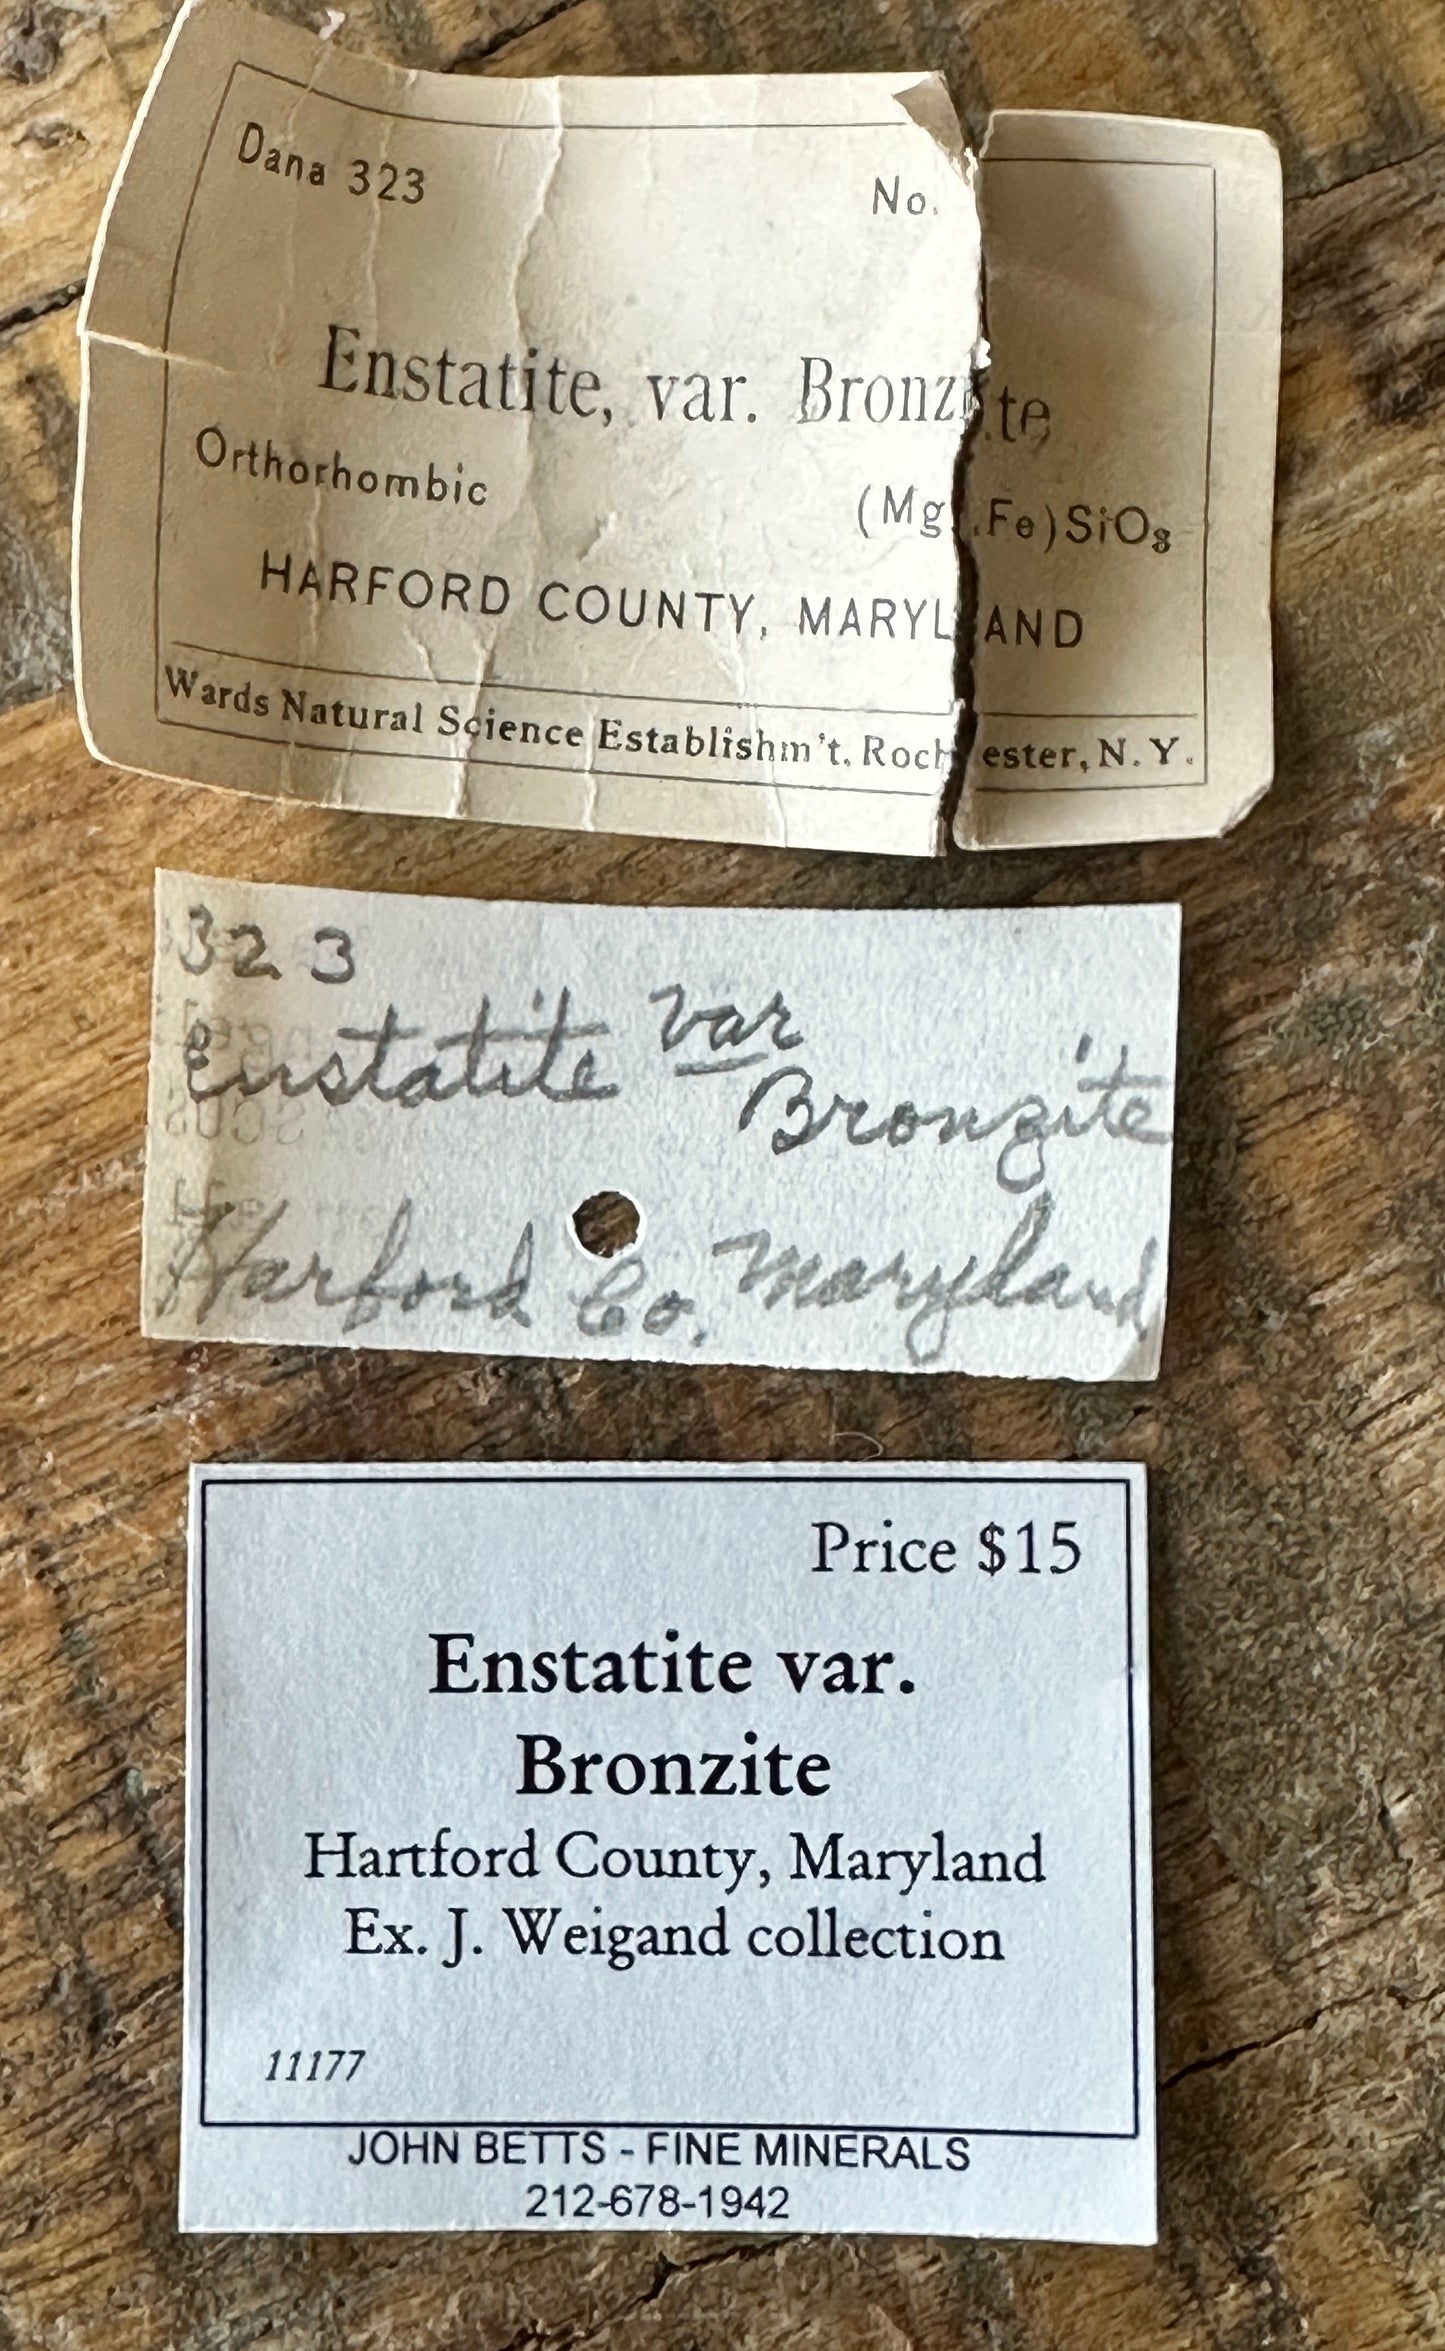 Dana 323 No.
Enstatite, var. Bronzite
Orthorhombic (Mg,Fe)SiO₃
HARFORD COUNTY, MARYLAND
Wards Natural Science Establishm't, Rochester, N. Y.
323
Enstatite var
Bronzite
Harford Co. Maryland
Price $15
Enstatite var.
Bronzite
Hartford County, Maryland
Ex. J. Weigand collection
11177
JOHN BETTS - FINE MINERALS
212-678-1942